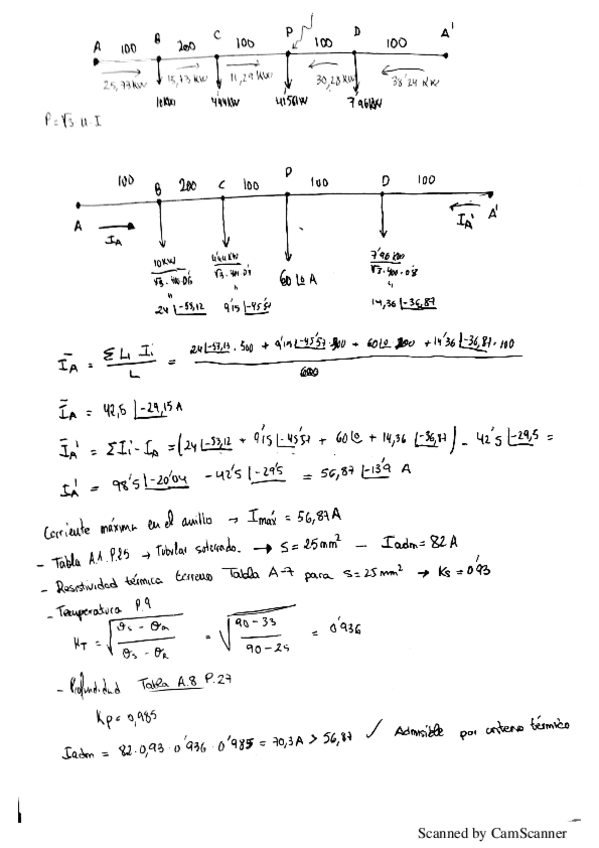 A 100 B 200 C 100 P 100 D 100 A'
25,73 KW 15,73 KW 11,29 KW 30,28 KW 38'24 KW
10KW 4'44KW 41'56KW 7'96KW
P = √3 U · I
100 B 200 C 100 P 100 D 100
A I_A I_A' A'
10KW / √3·400·0'6 60 ⌊0 A 7'96 / √3·400·0'8
24 ⌊-53,12 9'15 ⌊-45'57 14,36 ⌊-36,87
I_A = Σ L_i I_i / L = 24⌊-53,13 · 500 + 9'15⌊-45'57 · 300 + 60⌊0 · 200 + 14'36⌊-36,87 · 100 / 600
I_A = 42,5 ⌊-29,15 A
I_A' = ΣI_i - I_A = (24⌊-53,12 + 9'15⌊-45'57 + 60⌊0 + 14,36 ⌊-36,87) - 42'5 ⌊-29,5 =
I_A' = 98'5⌊-20'04 - 42'5 ⌊-29'5 = 56,87 ⌊-13'9 A
Corriente máxima en el anillo → I máx = 56,87A
- Tabla A.1 P.25 → Tubular soterrado. → S = 25 mm² - Iadm = 82 A
- Resistividad térmica terreno Tabla A-7 para S=25mm² → Ks = 0'93
- Temperatura P.9
K_T = √(θs - θa / θs - θR) = √(90-33 / 90-25) = 0'936
- Profundidad Tabla A.8 P.27
Kp = 0,985
Iadm = 82·0,93·0'936·0'985 = 70,3A > 56,87 ✓ Admisible por criterio térmico
Scanned by CamScanner